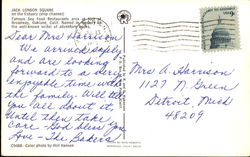 JACK LONDON SQUARE
on the Estuary (ship channel)
Famous Sea Food Restaurants area at foot of
Broadway, Oakland, Calif. Named in memory of
the well-known writer of adventure books.
Dear Mrs Harrison
We arrived safely
and are looking
forward to a very
enjoyable time with
the family. Will tell
you all about it.
Until then take
care - God bless you
Love - The Bakers
Color photo by Mike Roberts
Mrs A Harrison
1127 N Green
Detroit, Mich
48209